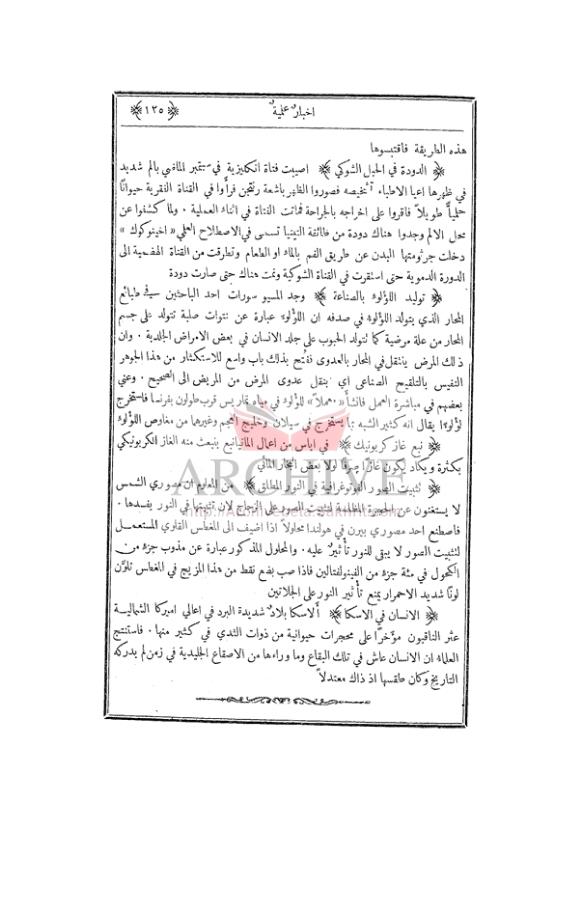 ﴿ ١٣٥ ﴾ اخبارٌ علميةٌ
هذه الطريقة فاقتبسوها
﴿ الدودة في الحبل الشوكي ﴾ اصيبت فتاة انكليزية في ستمبر الماضي بالم شديد
في ظهرها اعيا الاطباء تشخيصه فصوروا الظهر باشعة رنتجن فرأوا في القناة الفقرية حيوانًا
حلميًا طويلاً فاقروا على اخراجه بالجراحة فماتت الفتاة في اثناء العملية . ولما كشفوا عن
محل الالم وجدوا هناك دودة من طائفة التينيا تسمى في الاصطلاح العلمي « اخينوكوك »
دخلت جرثومتها البدن عن طريق الفم بالماء او الطعام وتطرقت من القناة الهضمية الى
الدورة الدموية حتى استقرت في القناة الشوكية ونمت هناك حتى صارت دودة
﴿ توليد اللؤلوء بالصناعة ﴾ وجد المسيو سورات احد الباحثين في طبائع
المحار الذي يتولد اللؤلوء في صدفه ان اللؤلوء عبارة عن نتوات صلبة تتولد على جسم
المحار من علة مرضية كما تتولد الحبوب على جلد الانسان في بعض الامراض الجلدية . وان
ذلك المرض ينتقل في المحار بالعدوى ففُتح بذلك باب واسع للاستكثار من هذا الجوهر
النفيس بالتلقيح الصناعي اي بنقل عدوى المرض من المريض الى الصحيح . وعني
بعضهم في مباشرة العمل فانشأ « معملاً » للؤلوء في مياه تماريس قرب طولون بفرنسا فاستخرج
لؤلوءًا يقال انه كثير الشبه بما يستخرج في سيلان وخليج العجم وغيرهما من مغاوص اللؤلوء
﴿ نبع غاز كربونيك ﴾ في اياس من اعمال المانيا نبع ينبعث منه الغاز الكربونيكي
بكثرة ويكاد يكون غازًا صرفًا لولا بعض البخار المائي
ARCHIVE
﴿ تثبيت الصور الفوتوغرافية في النور المطلق ﴾ من المعلوم ان مصوري الشمس
لا يستغنون عن الحجرة المظلمة لتثبيت الصور على الزجاج لان تثبيتها في النور يفسدها .
فاصطنع احد مصوري بيرن في هولندا محلولاً اذا اضيف الى المغطس القلوي المستعمل
لتثبيت الصور لا يبقى للنور تأثيرٌ عليه . والمحلول المذكور عبارة عن مذوب جزء من
الكحول في مئة جزء من الفينولفتالين فاذا صب بضع نقط من هذا المزيج في المغطس تلوَّن
لونًا شديد الاحمرار يمنع تأثير النور على الجلاتين
﴿ الانسان في الاسكا ﴾ ألاسكا بلادٌ شديدة البرد في اعالي اميركا الشمالية
عثر الناقبون مؤخرًا على محجرات حيوانية من ذوات الثدي في كثير منها . فاستنتج
العلماء ان الانسان عاش في تلك البقاع وما وراءها من الاصقاع الجليدية في زمن لم يدركه
التاريخ وكان طقسها اذ ذاك معتدلاً